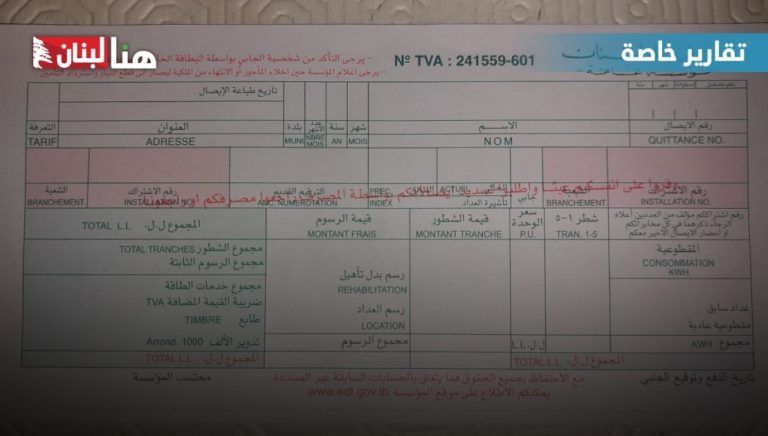 هنا لبنان
تقارير خاصة
يرجى التأكد من شخصية الجابي بواسطة البطاقة
Nº TVA : 241559-601
يرجى اعلام المؤسسة حين اخلاء المأجور أو الانتهاء من الملكية ليصار الى قطع التيار واسترداد التأمين
تاريخ طباعة الإيصال
رقم الايصال الاسم شهر سنة عدد الأشهر بلدة العنوان التعرفة
QUITTANCE NO. NOM MOIS AN NBRE MOIS MUNI ADRESSE TARIF
وفروا على انفسكم
رقم الاشتراك الشعبة جابي تأشيرة العداد الترقيم القديم رقم الاشتراك الشعبة
INSTALLATION NO. BRANCHEMENT ACTUEL PREC. INDEX ANC. NUMEROTATION INSTALLATION NO. BRANCHEMENT
رقم اشتراككم مؤلف من العددين أعلاه
الرجاء ذكرهما في كل مخابراتكم
أو احضار الايصال الاخير معكم
شطر ١-٥ سعر الوحدة قيمة الشطور قيمة الرسوم المجموع ل.ل.
TRAN. 1-5 P.U. MONTANT TRANCHE MONTANT FRAIS TOTAL L.L.
المقطوعية
CONSOMMATION
KWH
مجموع الشطور TOTAL TRANCHES
مجموع الرسوم الثابتة
رسم بدل تأهيل
REHABILITATION
مجموع خدمات الطاقة
ضريبة القيمة المضافة TVA
عداد سابق
رسم العداد
LOCATION
طابع TIMBRE
مقطوعية عادية
تدوير الألف Arrond. 1000
مجموع KWH
ل.ل. L.L.
مجموع الرسوم
المجموع ل.ل. TOTAL L.L.
المجموع ل.ل. TOTAL L.L.
تاريخ الدفع وتوقيع الجابي
مع الاحتفاظ بجميع الحقوق فما يتعلق بالحسابات السابقة غير المسددة
محتسب المؤسسة
يمكنكم الاطلاع على موقع المؤسسة www.edl.gov.lb